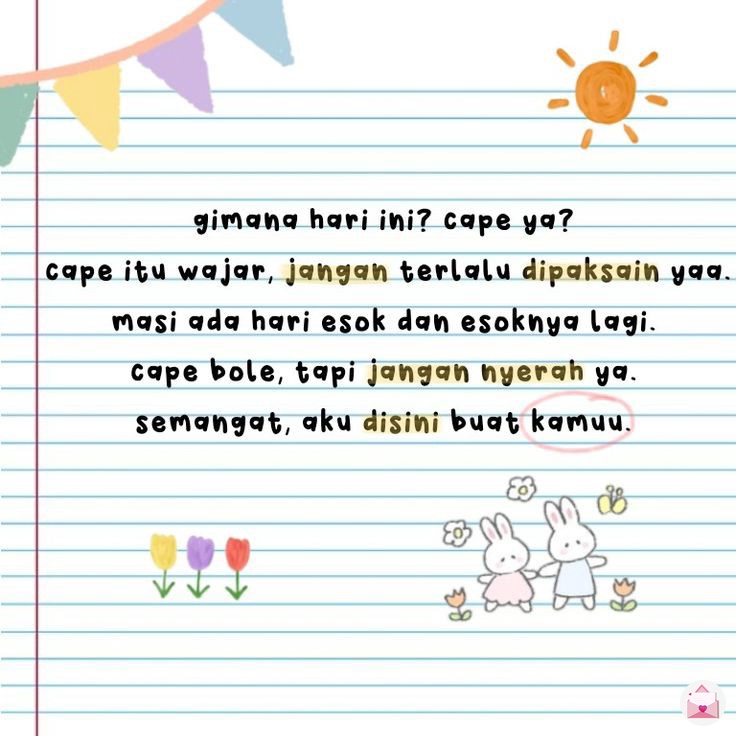 gimana hari ini? cape ya?
cape itu wajar, jangan terlalu dipaksain yaa.
masi ada hari esok dan esoknya lagi.
cape bole, tapi jangan nyerah ya.
semangat, aku disini buat kamuu.